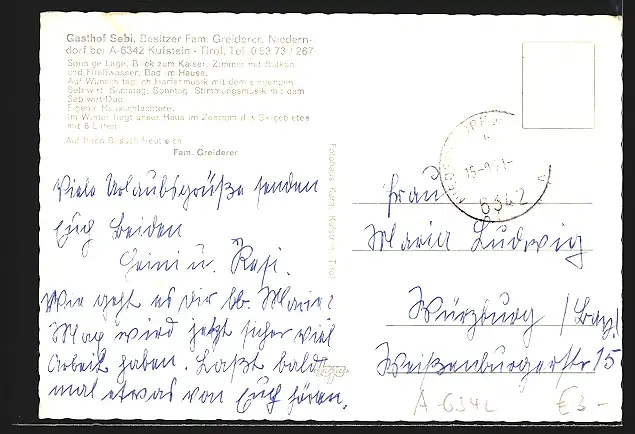 Gasthof Sebi, Besitzer Fam. Greiderer, Niedern-
dorf bei A-6342 Kufstein - Tirol, Tel. 0 53 73 / 267
Sonnige Lage, Blick zum Kaiser, Zimmer mit Balkon
und Fließwasser, Bad im Hause.
Auf Wunsch täglich Harfenmusik mit dem singenden
Sebiwirt. Samstag, Sonntag Stimmungsmusik mit dem
Sebiwirt-Duo.
Eigene Hausschlachterei.
Im Winter liegt unser Haus im Zentrum des Skigebietes
mit 6 Liften.
Auf Ihren Besuch freut sich
Fam. Greiderer
Viele Urlaubsgrüße senden
Euch beiden
Heini u. Resi.
Wie geht es Dir lb. Maria?
Mag wird jetzt sicher viel
Arbeit haben. Laßt bald
mal etwas von Euch hören.
6342
Frau
Maria Ludwig
Würzburg / Bay.
Weißenburgerstr 15
A-6342 €3-